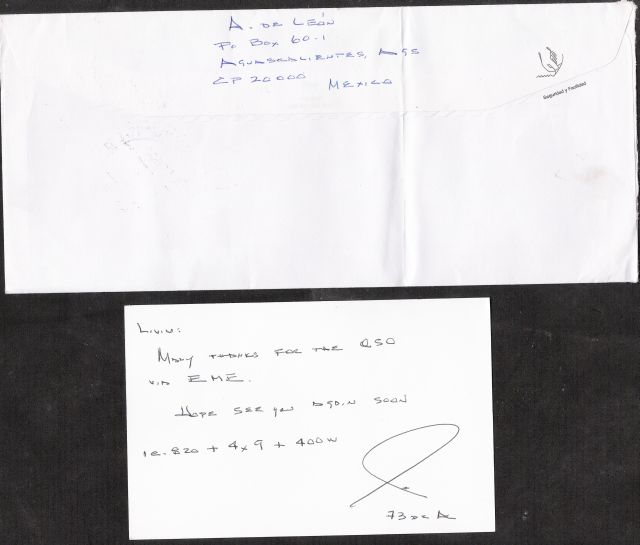 A. DE LEÓN
PO BOX 60-1
AGUASCALIENTES, AGS
CP 20000
MEXICO
Seguridad y Facilidad
LIVIU:
MANY THANKS FOR THE QSO
VIA EME.
HOPE SEE YOU AGAIN SOON
IC-820 + 4x9 + 400W
73 DE A